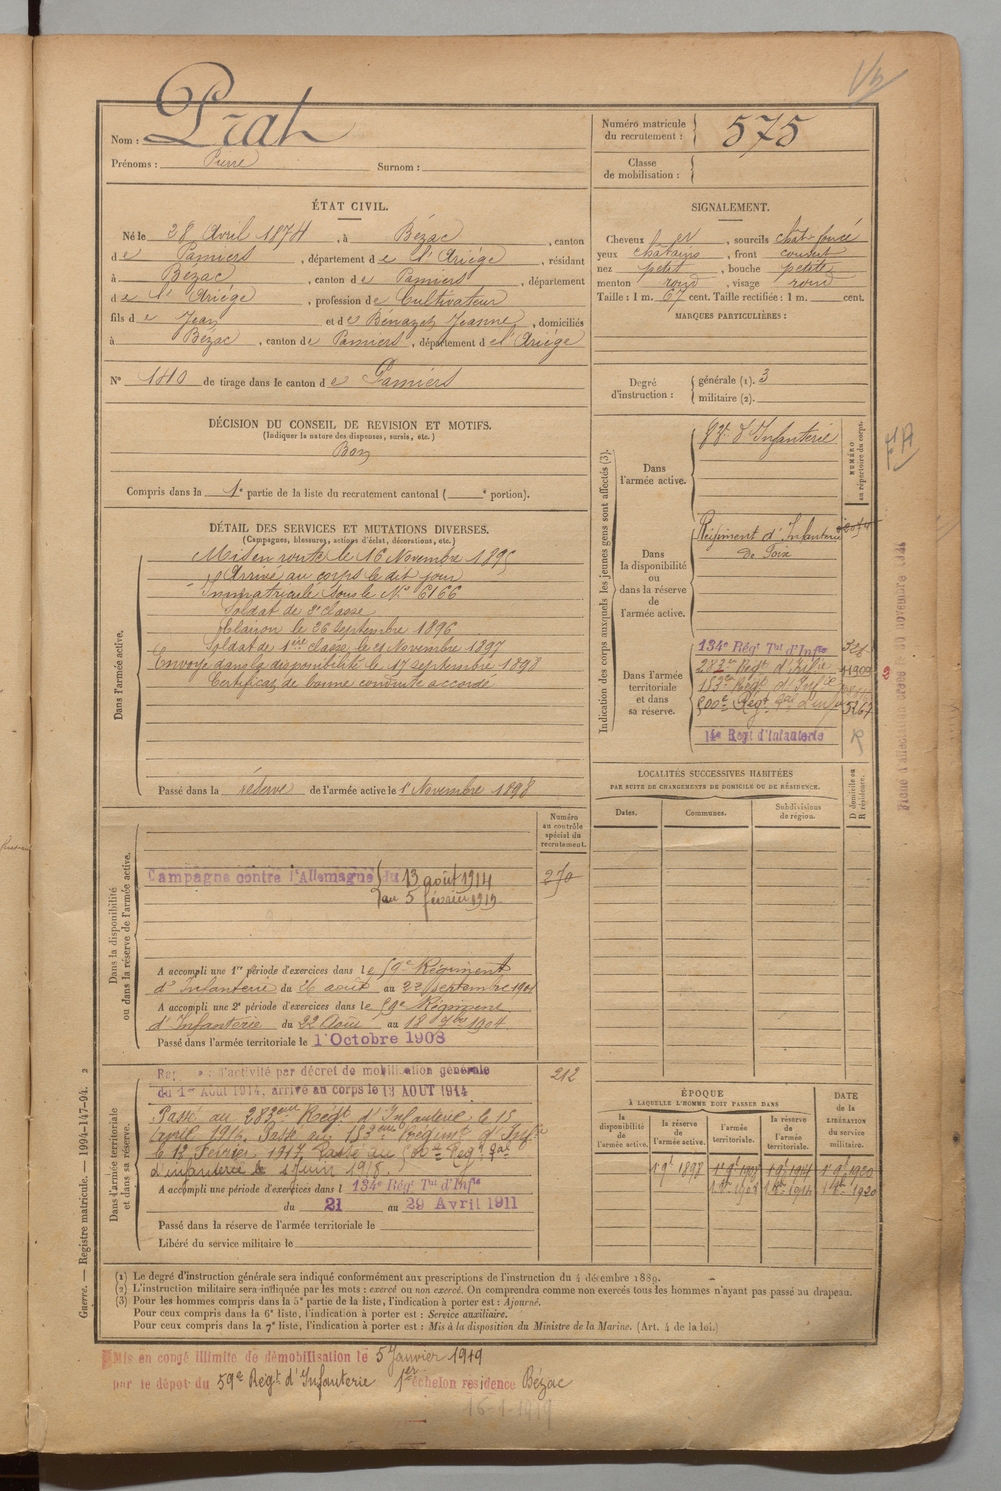 Nom : Prat
Prénoms : Pierre Surnom :
Numéro matricule du recrutement : 575
Classe de mobilisation :
ÉTAT CIVIL.
Né le 28 Avril 1874, à Bézac, canton
de Pamiers, département de l'Ariége, résidant
à Bézac, canton de Pamiers, département
de l'Ariége, profession de Cultivateur
fils de Jean et de Bénazet Jeanne, domiciliés
à Bézac, canton de Pamiers, département de l'Ariége
N° 140 de tirage dans le canton de Pamiers
DÉCISION DU CONSEIL DE REVISION ET MOTIFS.
(Indiquer la nature des dispenses, sursis, etc.)
Bon
Compris dans la 1e partie de la liste du recrutement cantonal ( e portion).
SIGNALEMENT.
Cheveux sourcils chat. foncé
yeux chatains, front couvert
nez petit, bouche petite
menton rond, visage rond
Taille : 1 m. 67 cent. Taille rectifiée : 1 m. cent.
MARQUES PARTICULIÈRES :
Degré d'instruction : générale (1). 3
militaire (2).
DÉTAIL DES SERVICES ET MUTATIONS DIVERSES.
(Campagnes, blessures, actions d'éclat, décorations, etc.)
Dans l'armée active.
Mis en route le 16 Novembre 1895
Arrivé au corps le dit jour
Immatriculé sous le N° 6166
Soldat de 2e classe
Clairon le 26 septembre 1896
Soldat de 1ère classe le Novembre 1897
Envoyé dans la disponibilité le 17 septembre 1898
Certificat de bonne conduite accordé
Passé dans la réserve de l'armée active le 1er Novembre 1898
Indication des corps auxquels les jeunes gens sont affectés (3).
NUMÉRO au répertoire du corps.
Dans l'armée active.
Rt d'Infanterie
Dans la disponibilité ou dans la réserve de l'armée active.
Régiment d'Infanterie
de Foix
Dans l'armée territoriale et dans sa réserve.
134e Rég Tal d'Infie
283e Régt d'Infie
153e Régt d'Infie
500e Régt 5267
14e Regt d'Infanterie R
Dans la disponibilité ou dans la réserve de l'armée active.
Numéro au contrôle spécial du recrutement.
270
Campagne contre l'Allemagne du 13 août 1914
au 5 février 1919
A accompli une 1re période d'exercices dans le 59e Régiment
d'Infanterie du 26 août au 22 septembre 1901
A accompli une 2e période d'exercices dans le 59e Régiment
d'Infanterie du 22 Août au 18 7bre 1904
Passé dans l'armée territoriale le 1er Octobre 1908
LOCALITÉS SUCCESSIVES HABITÉES
PAR SUITE DE CHANGEMENTS DE DOMICILE OU DE RÉSIDENCE.
Dates. Communes. Subdivisions de région. D domicile ou R résidence.
Dans l'armée territoriale et dans sa réserve.
212
d'activité par décret de mobilisation générale
du 1er Août 1914, arrivé au corps le 13 AOUT 1914
Passé au 283eme Regt d'Infanterie le 15
Avril 1916. Passé au 153eme Régiment d'Infie
le 13 Fevrier 1917. Passé au 500e Regt
d'infanterie le 1 Juin 1918.
A accompli une période d'exercices dans l 134e Rég Tal d'Infie
du 21 au 29 Avril 1911
Passé dans la réserve de l'armée territoriale le
Libéré du service militaire le
ÉPOQUE
À LAQUELLE L'HOMME DOIT PASSER DANS
la disponibilité de l'armée active. la réserve de l'armée active. l'armée territoriale. la réserve de l'armée territoriale. DATE de la LIBÉRATION du service militaire.
(1) Le degré d'instruction générale sera indiqué conformément aux prescriptions de l'instruction du 4 décembre 1889.
(2) L'instruction militaire sera indiquée par les mots : exercé ou non exercé. On comprendra comme non exercés tous les hommes n'ayant pas passé au drapeau.
(3) Pour les hommes compris dans la 5e partie de la liste, l'indication à porter est : Ajourné.
Pour ceux compris dans la 6e liste, l'indication à porter est : Service auxiliaire.
Pour ceux compris dans la 7e liste, l'indication à porter est : Mis à la disposition du Ministre de la Marine. (Art. 4 de la loi.)
Guerre. — Registre matricule. — 1994-147-94. 2
Mis en congé illimité de démobilisation le 5 Janvier 1919
par le dépôt du 59e Regt d'Infanterie 1er échelon residence Bézac
16-1-1919